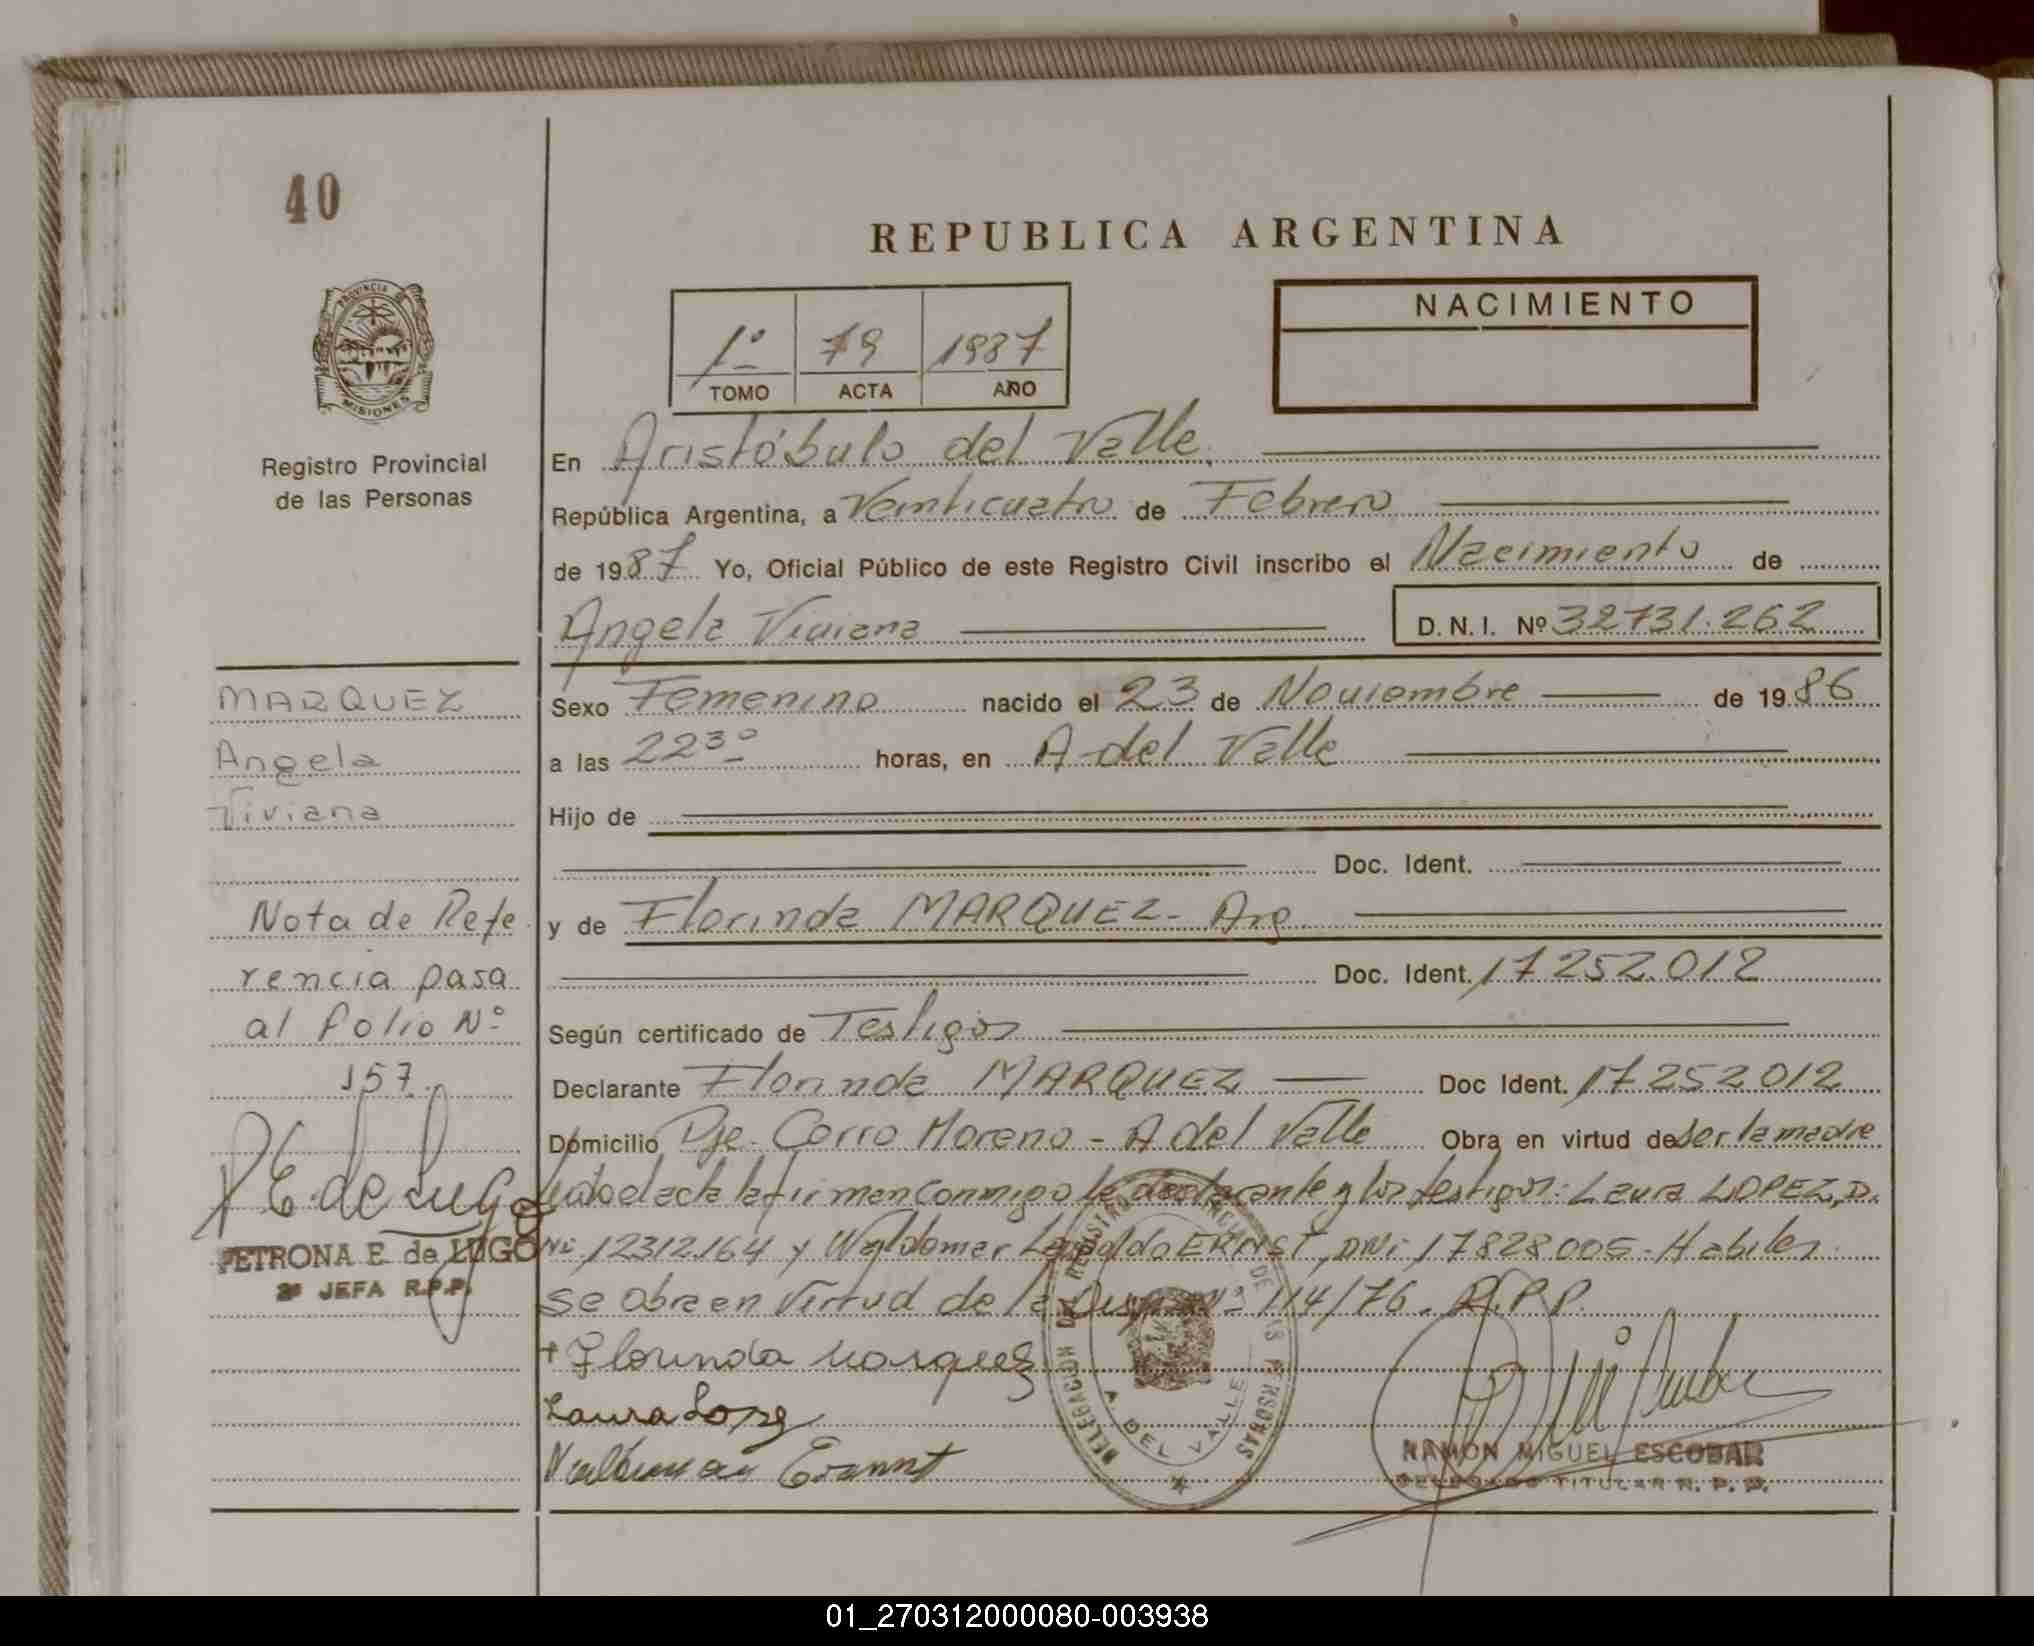 40
REPUBLICA ARGENTINA
PROVINCIA DE
MISIONES
NACIMIENTO
1º 79 1987
TOMO ACTA AÑO
Registro Provincial
de las Personas
En Aristóbulo del Valle.
República Argentina, a Veinticuatro de Febrero
de 1987 Yo, Oficial Público de este Registro Civil inscribo el Nacimiento de
Angela Viviana D.N.I. Nº 32731.262
MARQUEZ
Angela
Viviana
Sexo Femenino nacido el 23 de Noviembre de 1986
a las 22³⁰ horas, en A del Valle
Hijo de
Doc. Ident.
y de Florinda MARQUEZ - Arg
Doc. Ident. 17252.012
Según certificado de Testigos
Declarante Florinda MARQUEZ Doc Ident. 17252012
Domicilio Pje. Cerro Moreno - A del Valle Obra en virtud de ser la madre
el acta la firman conmigo la declarante y los testigos: Laura LOPEZ, D.
Ni. 12312.164 y Waldomar Leopoldo ERNST, DNi 17828005 - Habiles.
se obra en virtud de la Nº 114/76. R.P.P.
Florinda Marques
Laura Lopez
Nota de Refe
rencia pasa
al folio Nº
157.
P E. de Lugo
PETRONA E. de LUGO
2ª JEFA R.P.P.
DELEGACION DEL REGISTRO PROVINCIAL DE LAS PERSONAS
A. DEL VALLE
RAMON MIGUEL ESCOBAR
DELEGADO TITULAR R. P. P.
01_270312000080-003938